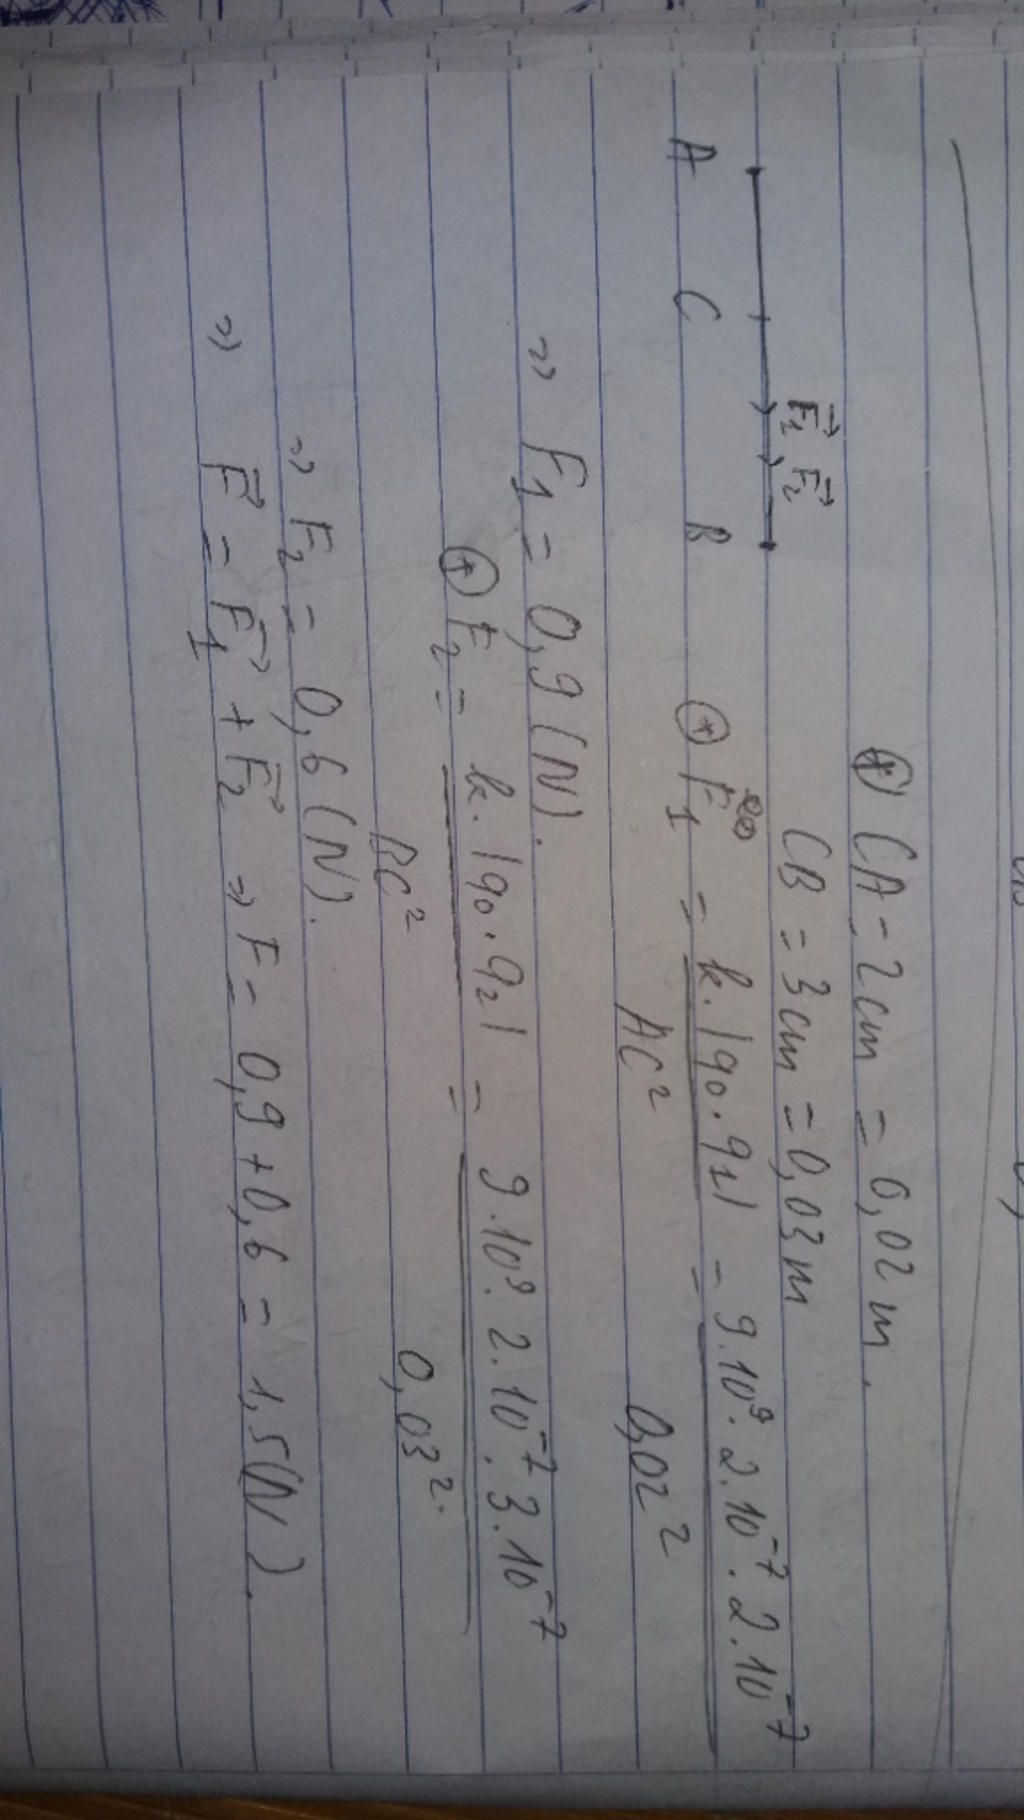 ⊕ CA = 2cm = 0,02 m.
CB = 3cm = 0,03 m
F₁→ F₂→
A C B
⊕ F₁ = k.|q₀.q₁| / AC² = 9.10⁹.2.10⁻⁷.2.10⁻⁷ / 0,02²
=> F₁ = 0,9 (N).
⊕ F₂ = k.|q₀.q₂| / BC² = 9.10⁹.2.10⁻⁷.3.10⁻⁷ / 0,03².
=> F₂ = 0,6 (N).
=> F→ = F₁→ + F₂→ => F = 0,9 + 0,6 = 1,5 (N).